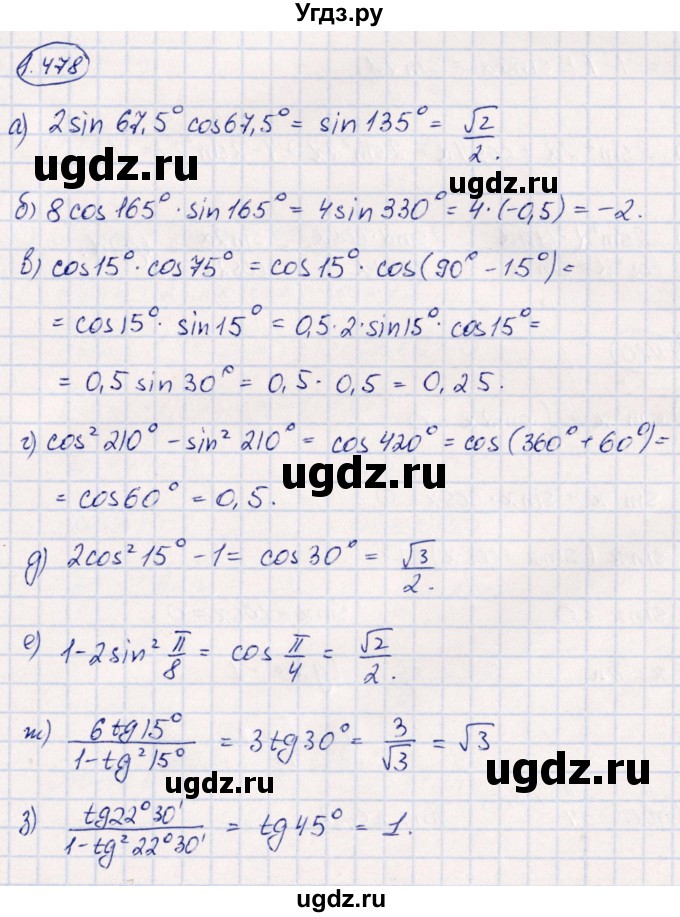 Угдз.ру
1.478
а) 2sin 67,5° cos67,5° = sin 135° = √2/2.
ugdz.ru
ugdz.ru
б) 8 cos 165° · sin 165° = 4 sin 330° = 4 · (-0,5) = -2.
в) cos15° · cos 75° = cos 15° · cos(90° - 15°) =
= cos15° · sin 15° = 0,5 · 2 · sin15° · cos15° =
= 0,5 sin 30° = 0,5 · 0,5 = 0,25.
г) cos² 210° - sin² 210° = cos 420° = cos(360° + 60°) =
ugdz.ru
= cos60° = 0,5.
д) 2cos² 15° - 1 = cos 30° = √3/2.
е) 1 - 2sin² π/8 = cos π/4 = √2/2.
ж) 6 tg15°/1 - tg² 15° = 3 tg 30° = 3/√3 = √3
ugdz.ru
ugdz.ru
з) tg22°30'/1 - tg² 22°30' = tg 45° = 1.
ugdz.ru